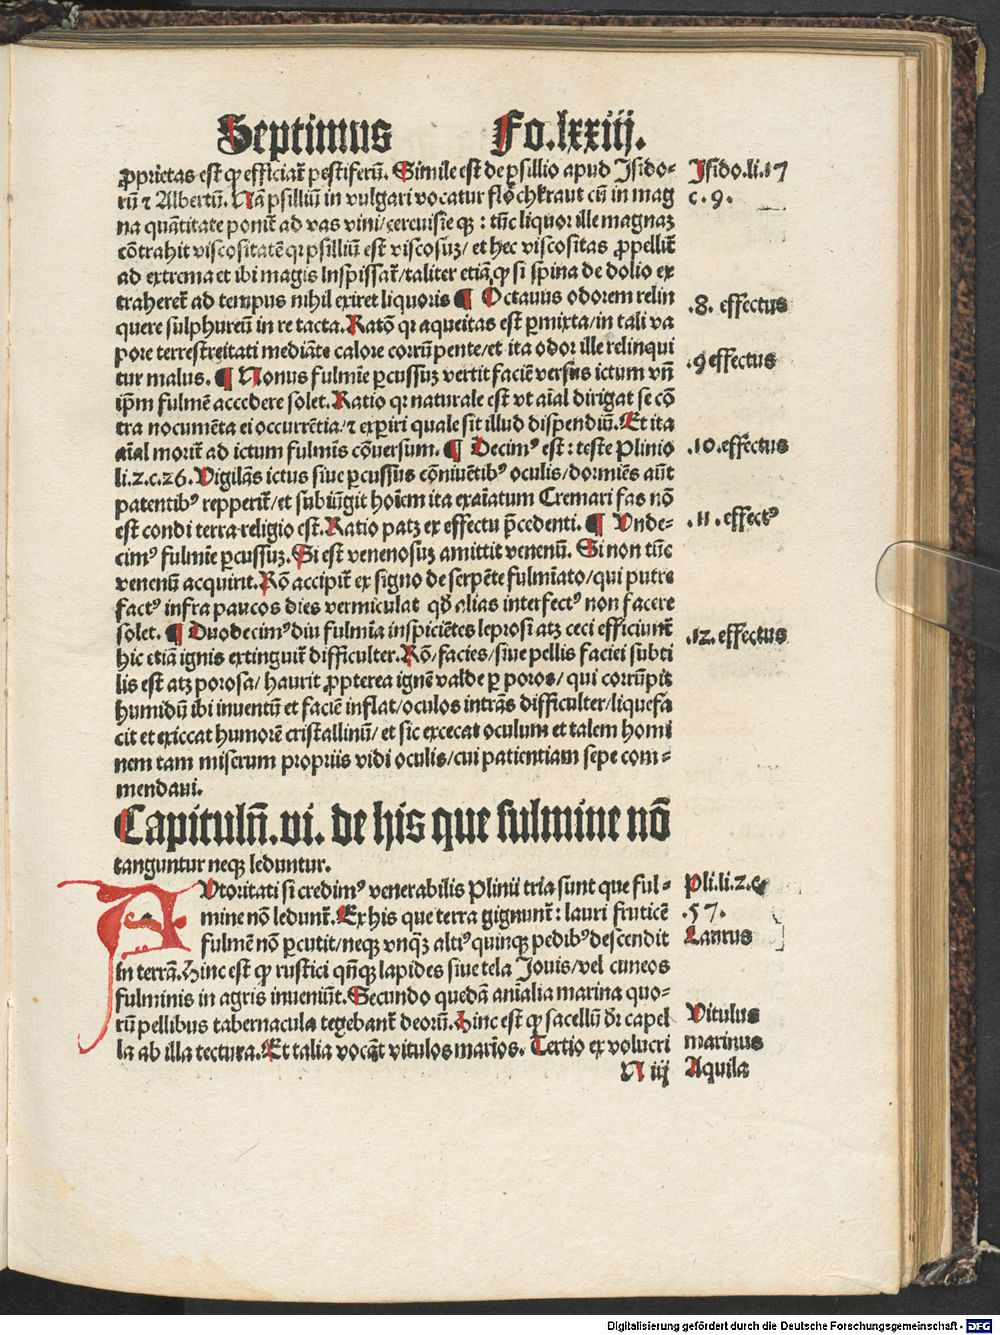 Septimus Fo.lxxiij.
ꝓprietas est ꝙ efficiat̃ pestiferũ. Simile est de psillio apud Isido-
rũ ⁊ Albertũ. Nã psilliũ in vulgari vocatur flöchkraut cũ in mag
na quãtitate ponit̃ ad vas vini/cereuisie qꝫ : tũc liquor ille magnaꝫ
cõtrahit viscositatẽ qꝛ psilliũ est viscosuꝫ/ et hec viscositas ꝓpellit̃
ad extrema et ibi magis Inspissat̃/taliter etiã ꝙ si spina de dolio ex
traheret̃ ad tempus nihil exiret liquoris ¶ Octauus odorem relin
quere sulphureũ in re tacta. Ratõ qꝛ aqueitas est ꝑmixta/in tali va
pore terrestreitati mediãte calore corrũpente/et ita odor ille relinqui
tur malus. ¶ Nonus fulmĩe ꝑcussuꝫ vertit faciẽ versus ictum vñ
ip̃m fulmẽ accedere solet. Ratio qꝛ naturale est vt aĩal dirigat se cõ
tra nocumẽta ei occurrẽtia/⁊ exꝑiri quale sit illud dispendiũ. Et ita
aĩal morit̃ ad ictum fulmĩs cõuersum. ¶ Decimꝰ est : teste Plinio
li.2.c.26. Vigilãs ictus siue ꝑcussus cõniuẽtibꝰ oculis/dormiẽs aũt
patentibꝰ repperit̃/et subiũgit hoĩem ita exaĩatum Cremari fas nõ
est condi terra religio est. Ratio patꝫ ex effectu p̃cedenti. ¶ Vnde-
cimꝰ fulmĩe ꝑcussuꝫ. Si est venenosuꝫ amittit venenũ. Si non tũc
venenũ acquirit. Rõ accipit̃ ex signo de serpẽte fulmĩato/qui putre
factꝰ infra paucos dies vermiculat qđ alias interfectꝰ non facere
solet. ¶ Duodecimꝰ diu fulmĩa inspiciẽtes leprosi atꝫ ceci efficiunt̃
hic etiã ignis extinguit̃ difficulter. Rõ/facies/siue pellis faciei subti
lis est atꝫ porosa/ haurit ꝓpterea ignẽ valde ꝑ poros/ qui corrũpit
humidũ ibi inuentũ et faciẽ inflat/oculos intrãs difficulter/liquefa
cit et exiccat humorẽ cristallinũ/ et sic excecat oculum et talem homi
nem tam miserum propriis vidi oculis/cui patientiam sepe com-
mendaui.
Capitulũ.vi. de his que fulmine nõ
tanguntur neqꝫ leduntur.
AVtoritati si credimꝰ venerabilis Plinii tria sunt que ful-
mine nõ ledunt̃. Ex his que terra gignunt̃ : lauri fruticẽ
fulmẽ nõ ꝑcutit/neqꝫ vnqꝫ altiꝰ quinqꝫ pedibꝰ descendit
in terrã. Hinc est ꝙ rustici qñqꝫ lapides siue tela Jouis/vel cuneos
fulminis in agris inueniũt. Secundo quedã anĩalia marina quo-
rũ pellibus tabernacula tegebant̃ deorũ. Hinc est ꝙ sacellũ dr̃ capel
la ab illa tectura. Et talia vocãt vitulos marĩos. Tertio ex volucri
N iij
Isido.li.17
c.9.
.8. effectus
.9 effectus
.10. effectus
.11. effectꝰ
.12. effectus
Pli.li.2.c
.57.
Laurus
Vitulus
marinus
Aquila
Digitalisierung gefördert durch die Deutsche Forschungsgemeinschaft - DFG